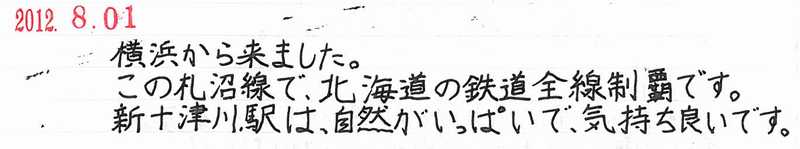 2012. 8.01
横浜から来ました。
この札沼線で、北海道の鉄道全線制覇です。
新十津川駅は、自然がいっぱいで、気持ち良いです。